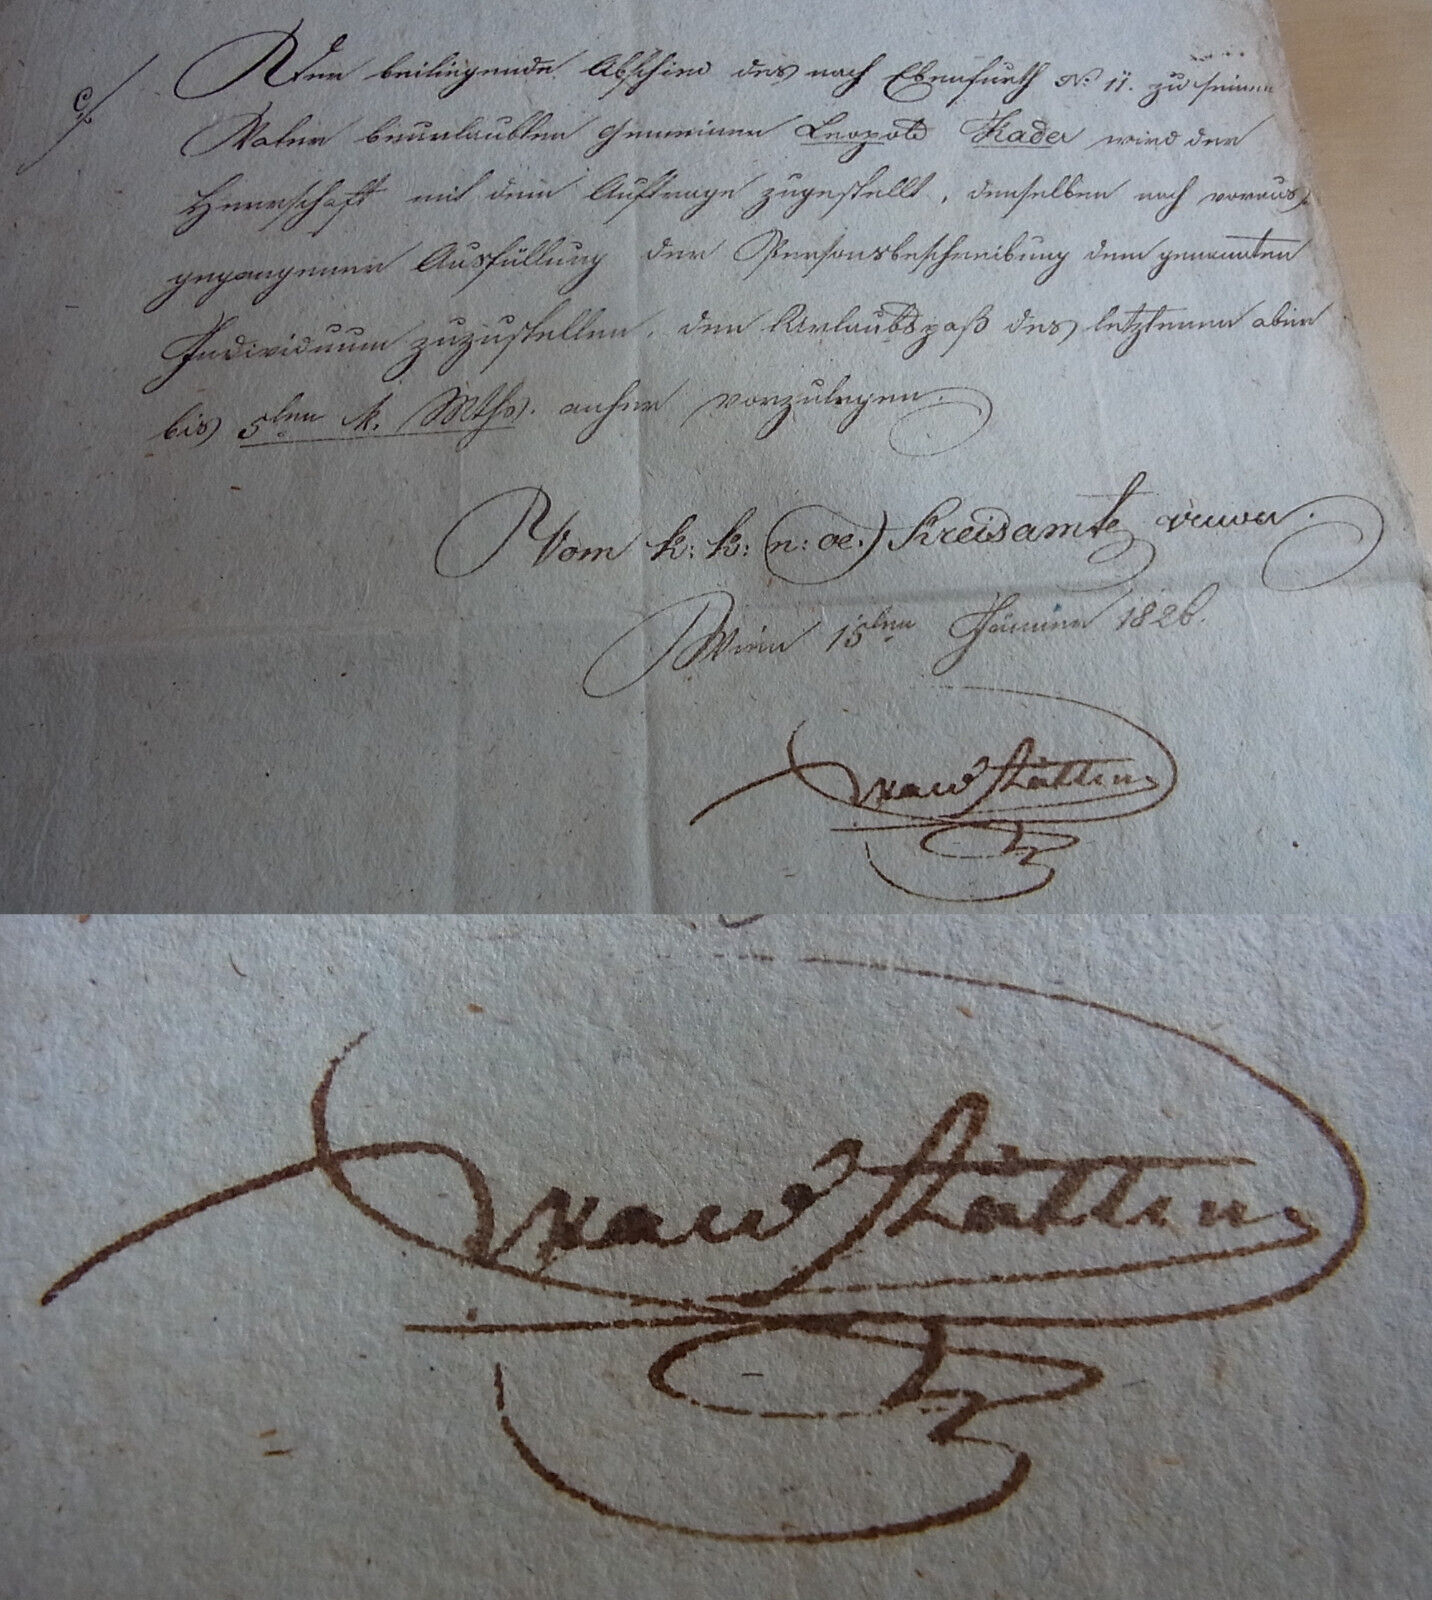 Der beiliegende Abschied des nach Ebenfurth N: 11. zu seinem
Vater beurlaubten Gemeinen Leopold Kader wird der
Herrschaft mit dem Auftrage zugestellt, denselben nach voraus
gegangener Ausfüllung der Personsbeschreibung dem genannten
Individuum zuzustellen, den Urlaubspaß des letzteren aber
bis 5ten k. Mths. anher vorzulegen.
Vom k: k: (n: oe:) Kreisamte
Wien 15ten Jänner 1826.